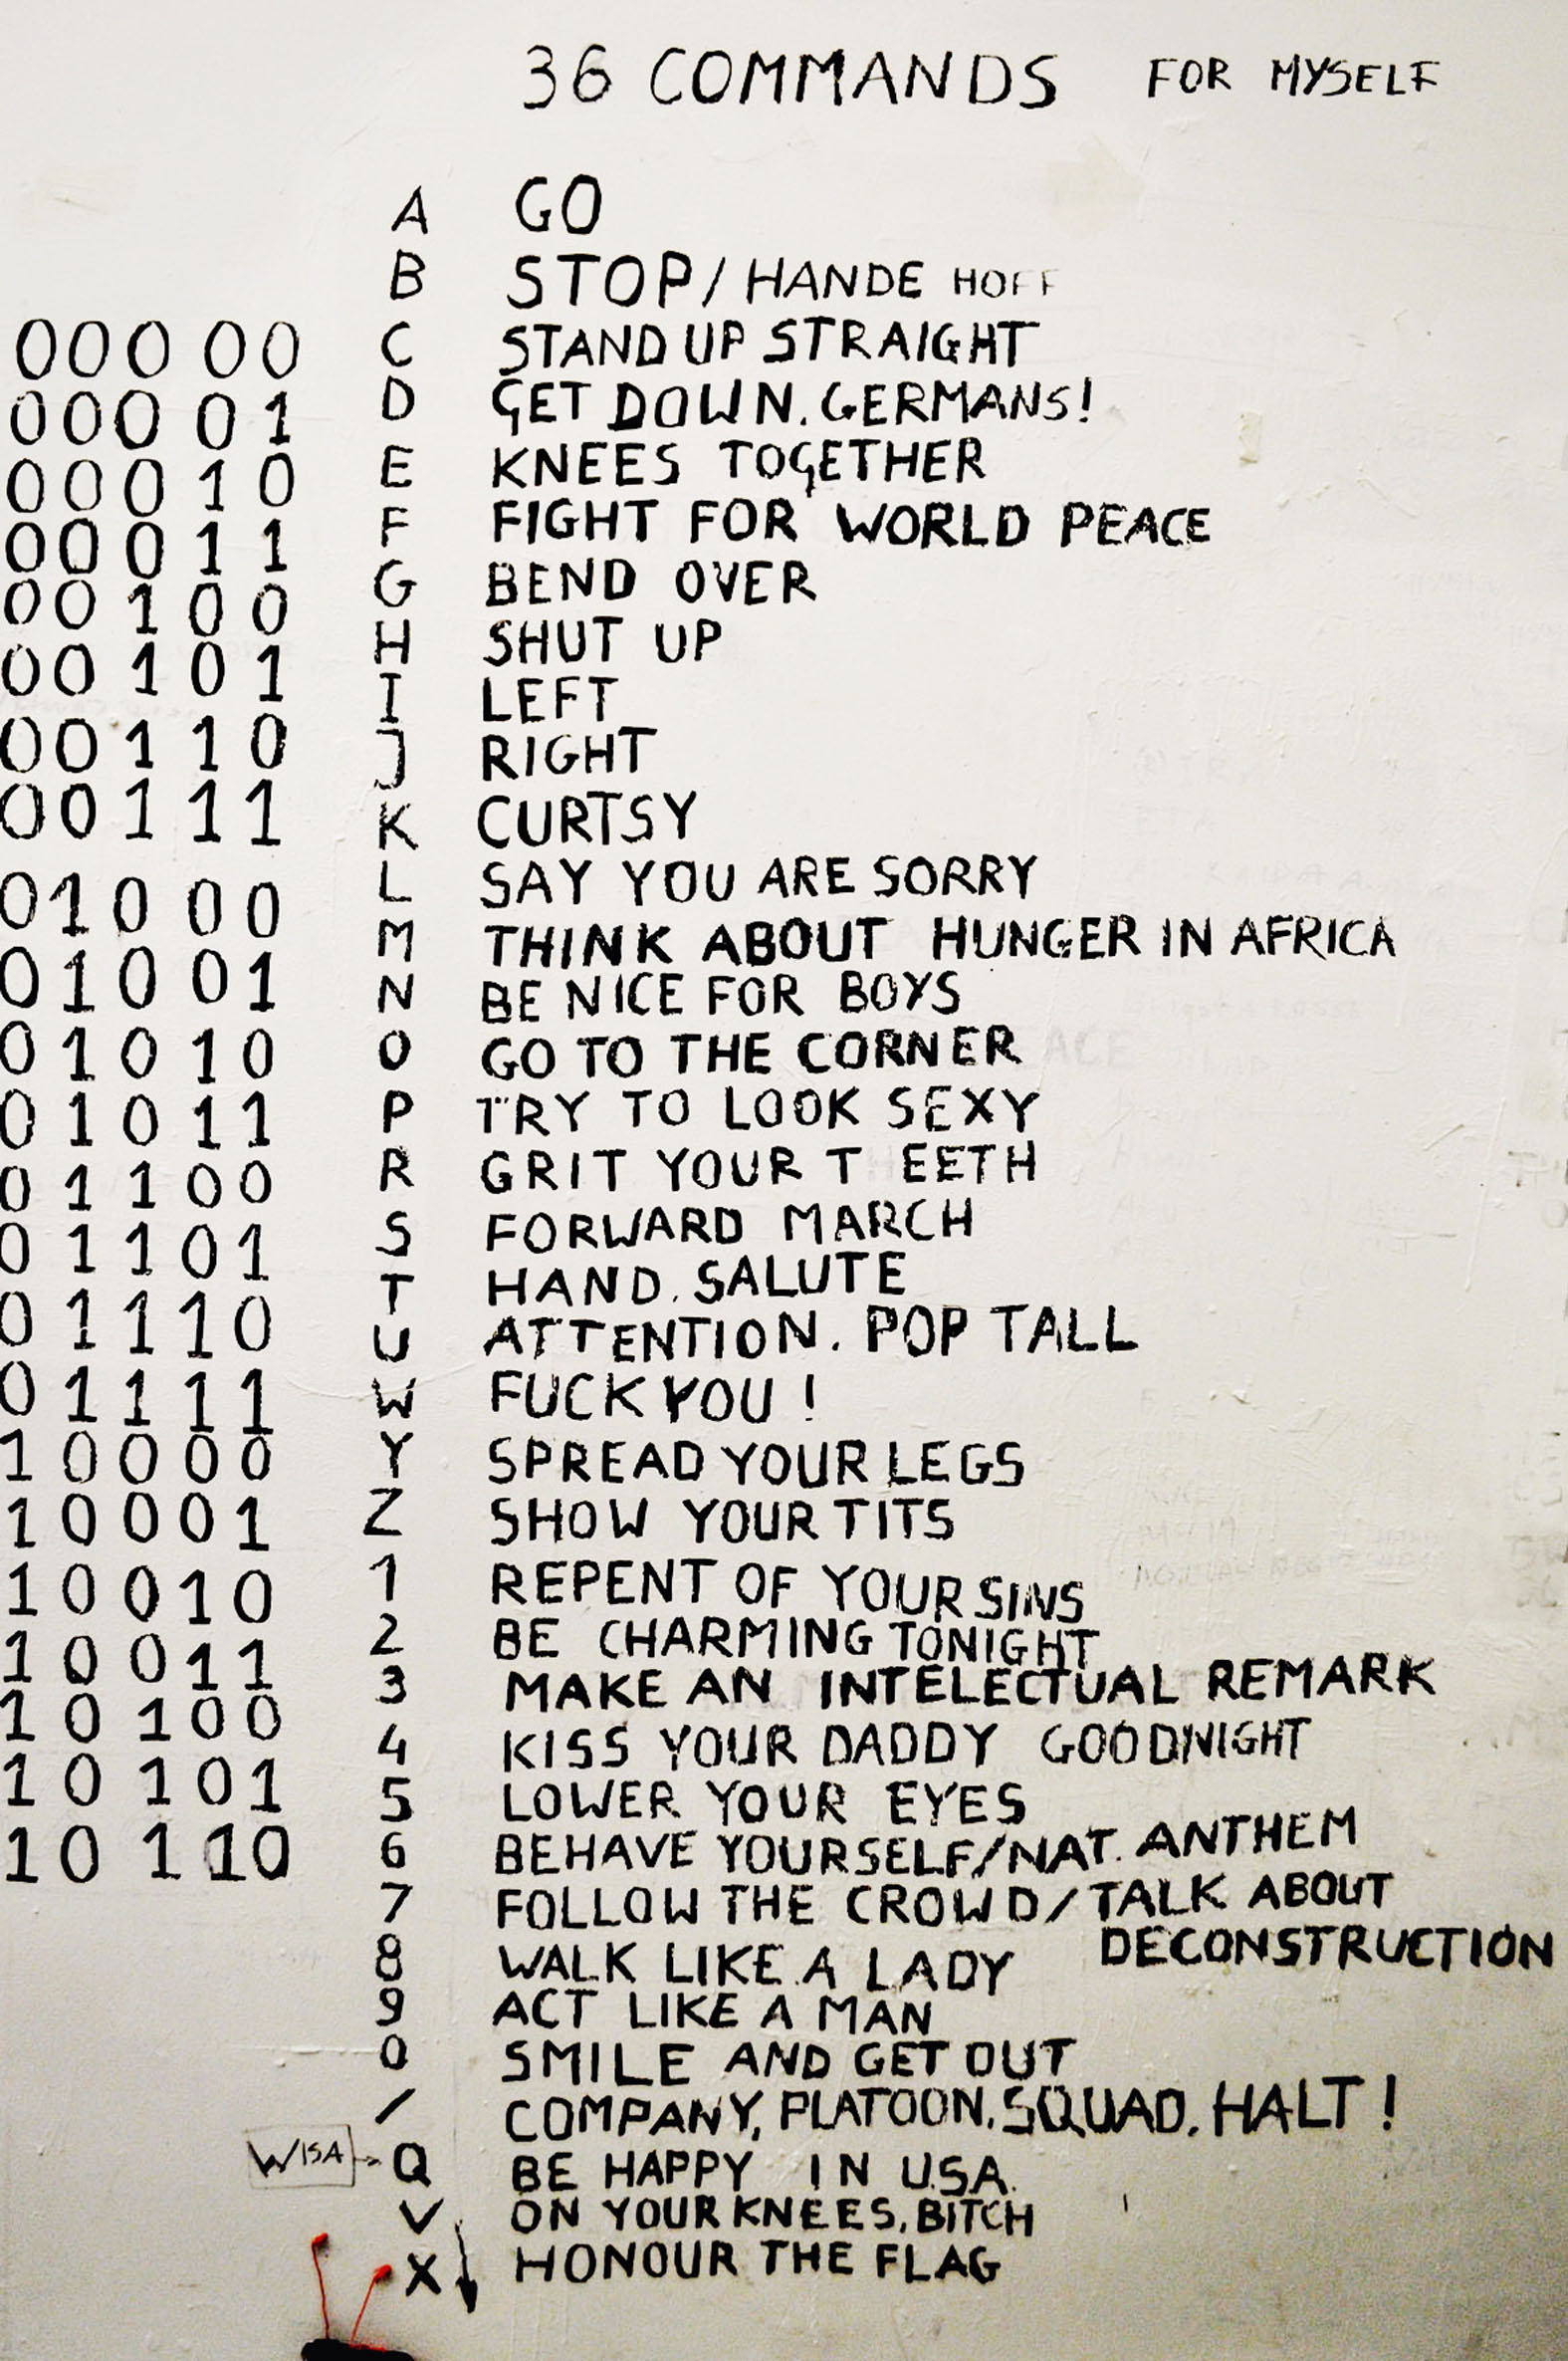 36 COMMANDS FOR MYSELF
A GO
B STOP/HANDE HOFF
00000 C STAND UP STRAIGHT
00001 D GET DOWN. GERMANS!
00010 E KNEES TOGETHER
00011 F FIGHT FOR WORLD PEACE
00100 G BEND OVER
00101 H SHUT UP
I LEFT
00110 J RIGHT
00111 K CURTSY
01000 L SAY YOU ARE SORRY
M THINK ABOUT HUNGER IN AFRICA
01001 N BE NICE FOR BOYS
01010 O GO TO THE CORNER
01011 P TRY TO LOOK SEXY
01100 R GRIT YOUR T EETH
01101 S FORWARD MARCH
T HAND. SALUTE
01110 U ATTENTION. POP TALL
01111 W FUCK YOU!
10000 Y SPREAD YOUR LEGS
10001 Z SHOW YOUR TITS
10010 1 REPENT OF YOUR SINS
10011 2 BE CHARMING TONIGHT
10100 3 MAKE AN INTELECTUAL REMARK
4 KISS YOUR DADDY GOODNIGHT
10101 5 LOWER YOUR EYES
10110 6 BEHAVE YOURSELF/NAT. ANTHEM
7 FOLLOW THE CROWD/TALK ABOUT
DECONSTRUCTION
8 WALK LIKE A LADY
9 ACT LIKE A MAN
0 SMILE AND GET OUT
/ COMPANY, PLATOON, SQUAD, HALT!
WISA Q BE HAPPY IN U.S.A.
V ON YOUR KNEES, BITCH
X HONOUR THE FLAG